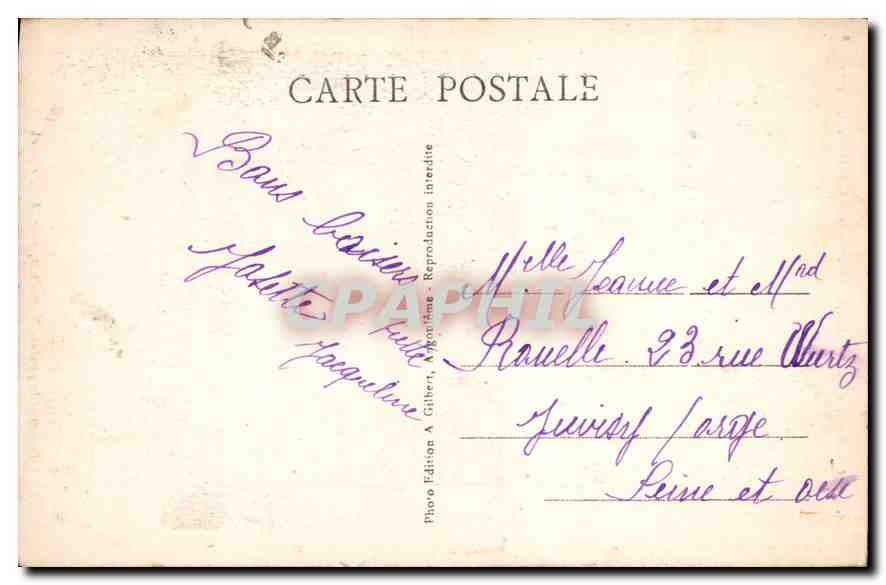 CARTE POSTALE
Bons baisers
Josette
Jacqueline
Photo Edition A Gilbert, Angoulême - Reproduction interdite
CPAPHIL
Melle Jeanne et Mnd
Rouelle 23 rue Wurtz
Juvisy / orge
Seine et oise